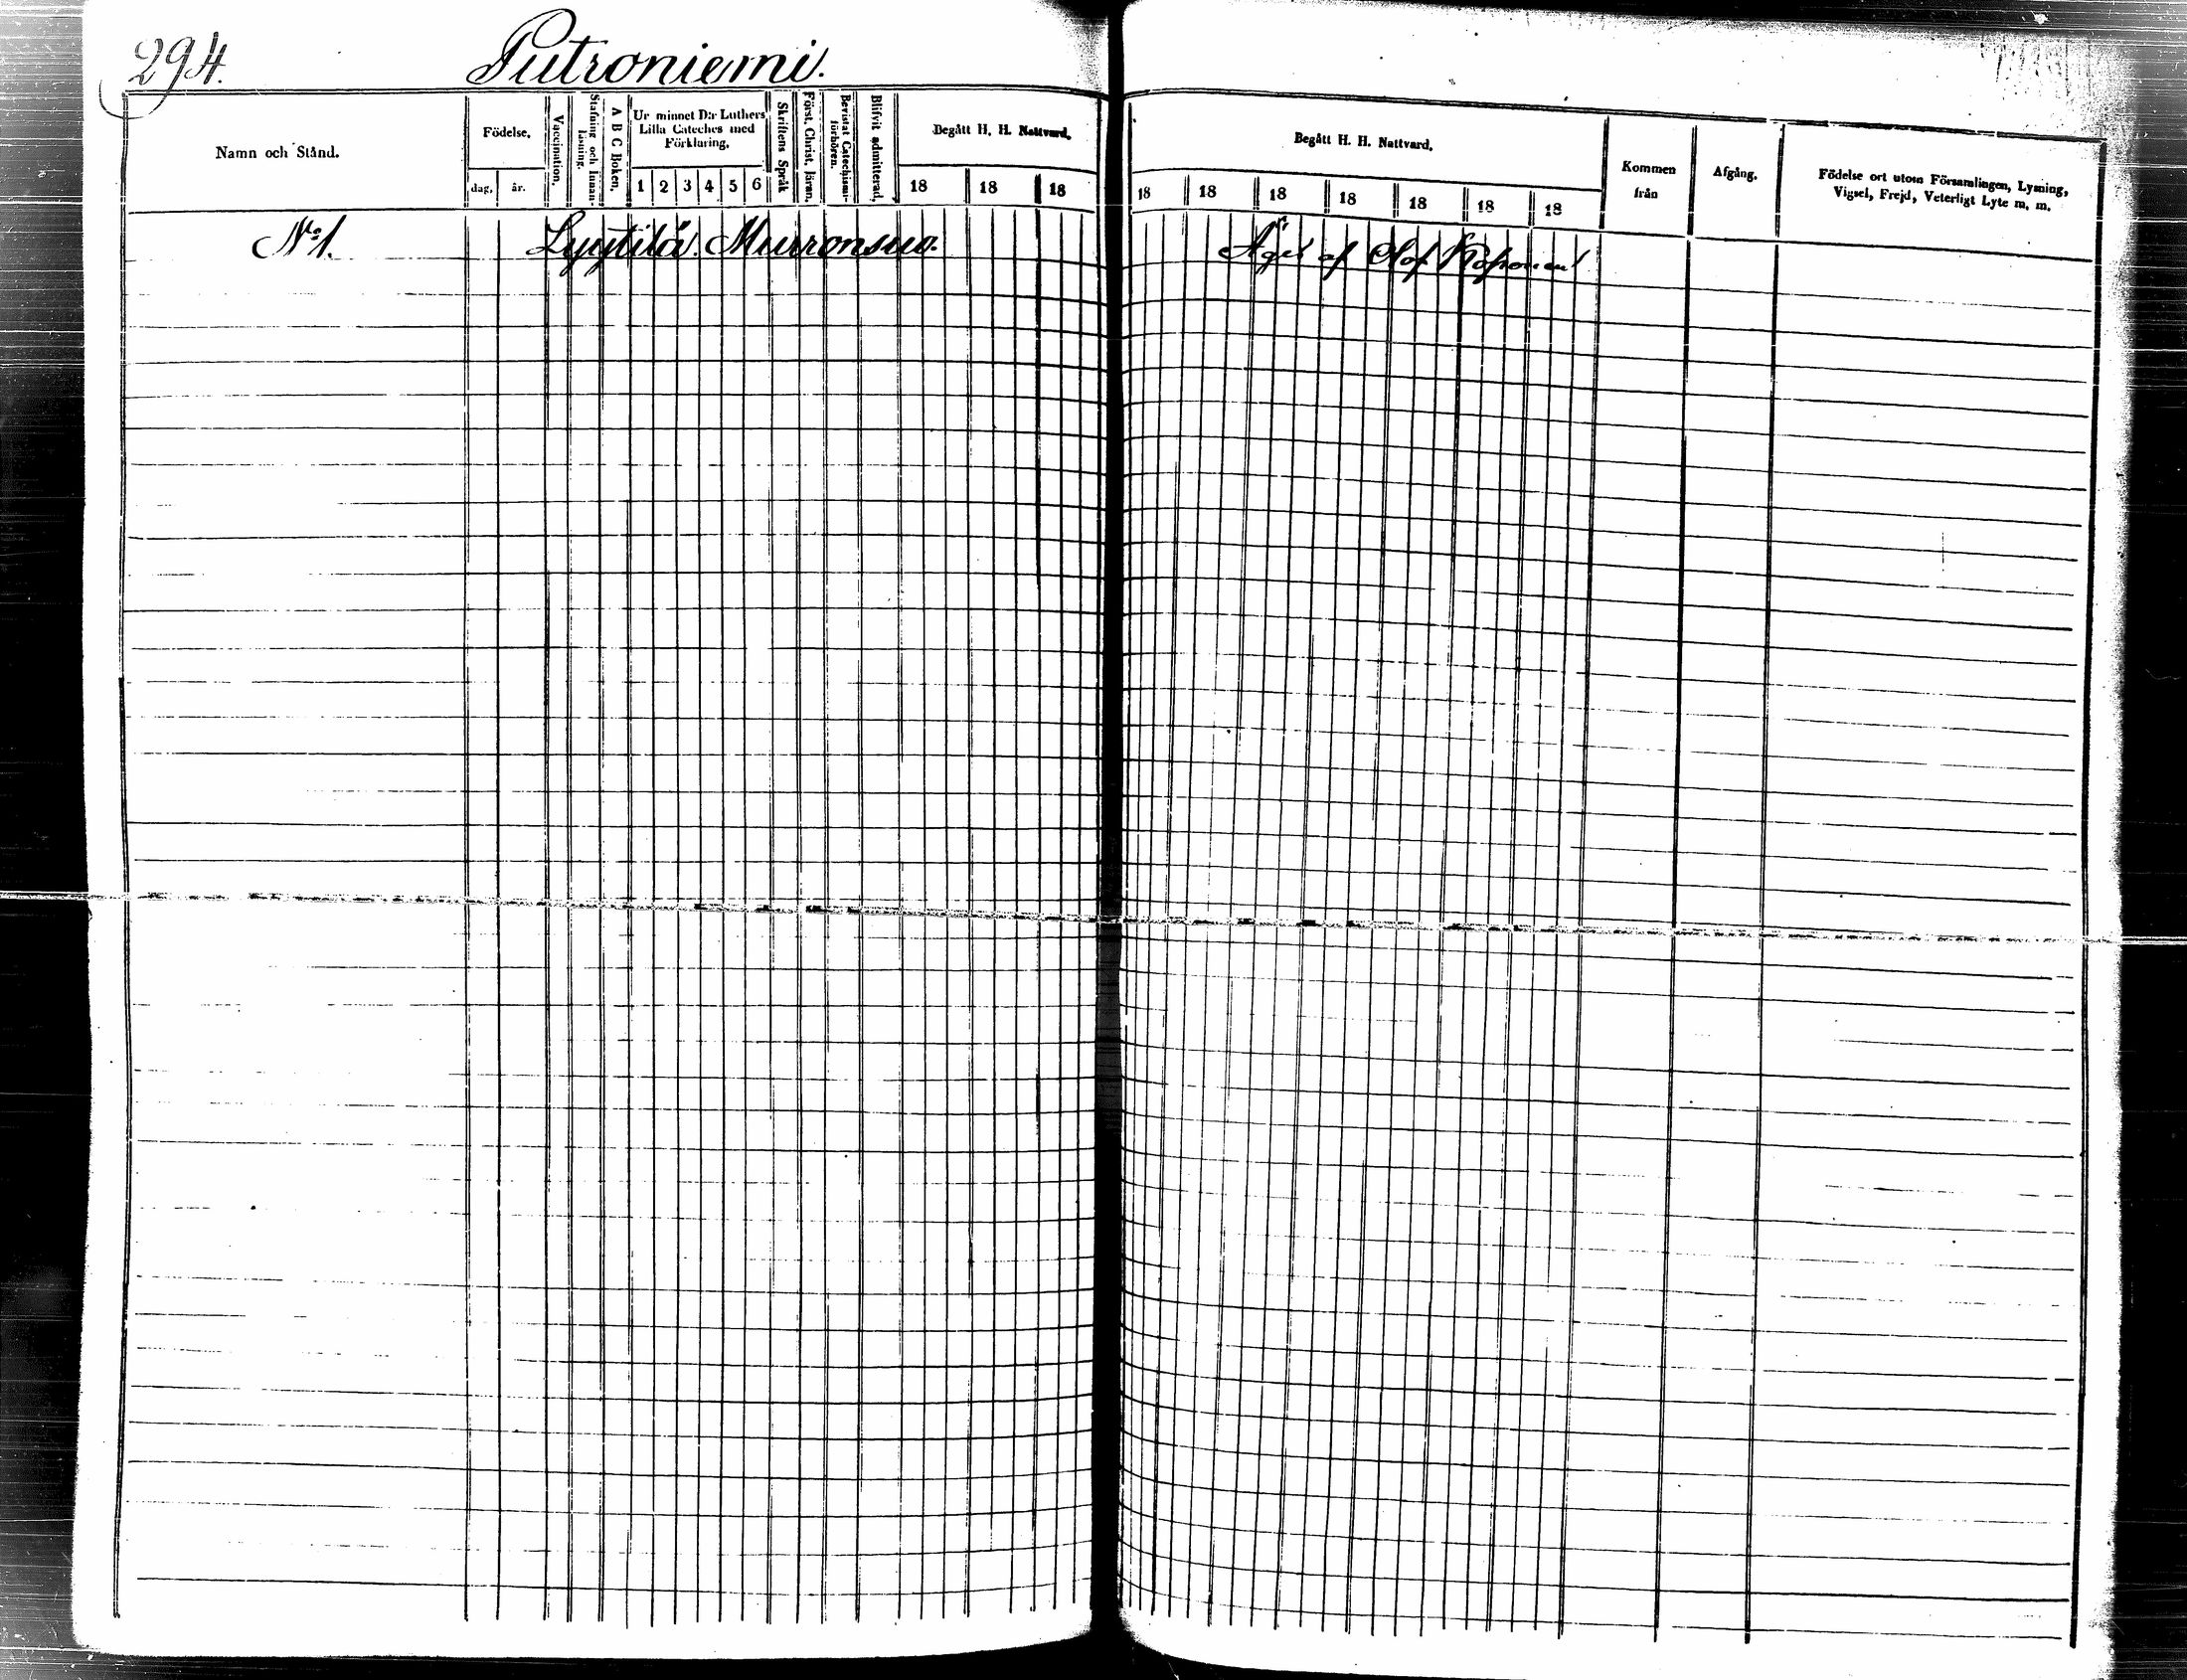 294. Putroniemi.
Namn och Stånd.
Födelse.
dag. år.
Vaccination.
Stafning och Innan-
läsning.
A B C Boken.
Ur minnet D:r Luthers
Lilla Cateches med
Förklaring.
1 2 3 4 5 6
Skriftens Språk
Först. Christ. läran.
Bevistat Catechismi-
förhören.
Blifvit admitterad.
Begått H. H. Nattvard.
18 18 18
Begått H. H. Nattvard.
18 18 18 18 18 18 18
Kommen
från
Afgång.
Födelse ort utom Församlingen, Lysning,
Vigsel, Frejd, Veterligt Lyte m. m.
No 1. Lyytilä. Murronsuo. Äges af Olof Koponen